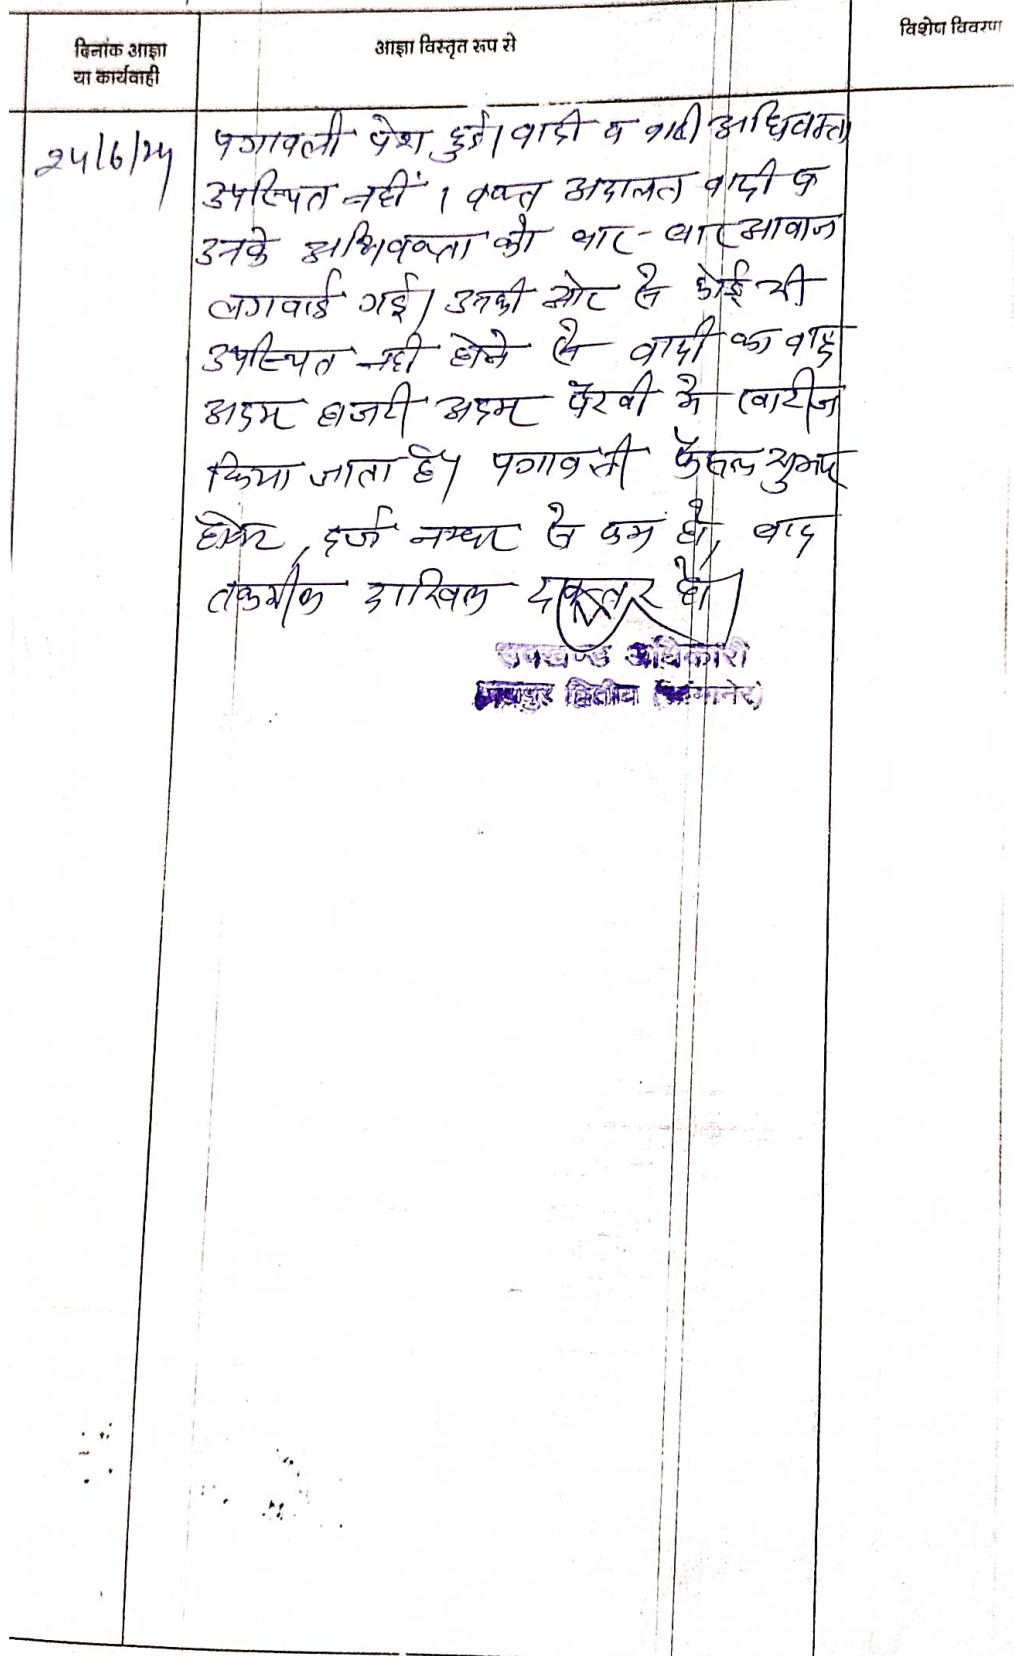 दिनांक आज्ञा
या कार्यवाही
आज्ञा विस्तृत रूप से
विशेष विवरण
24/6/24
पत्रावली पेश हुई। वादी व वादी अधिवक्ता
उपस्थित नहीं। वक्त अदालत वादी व
उनके अधिवक्ता को बार-बार आवाज
लगवाई गई। उनकी ओर से कोई भी
उपस्थित नही होने से वादी का वाद
अदम हाजरी अदम पैरवी मे खारीज
किया जाता है। पत्रावली फैसल शुमार
होकर, दर्ज नम्बर से कम हो, बाद
तकमील दाखिल दफ्तर हो।
उपखण्ड अधिकारी
जयपुर द्वितीय (सांगानेर)